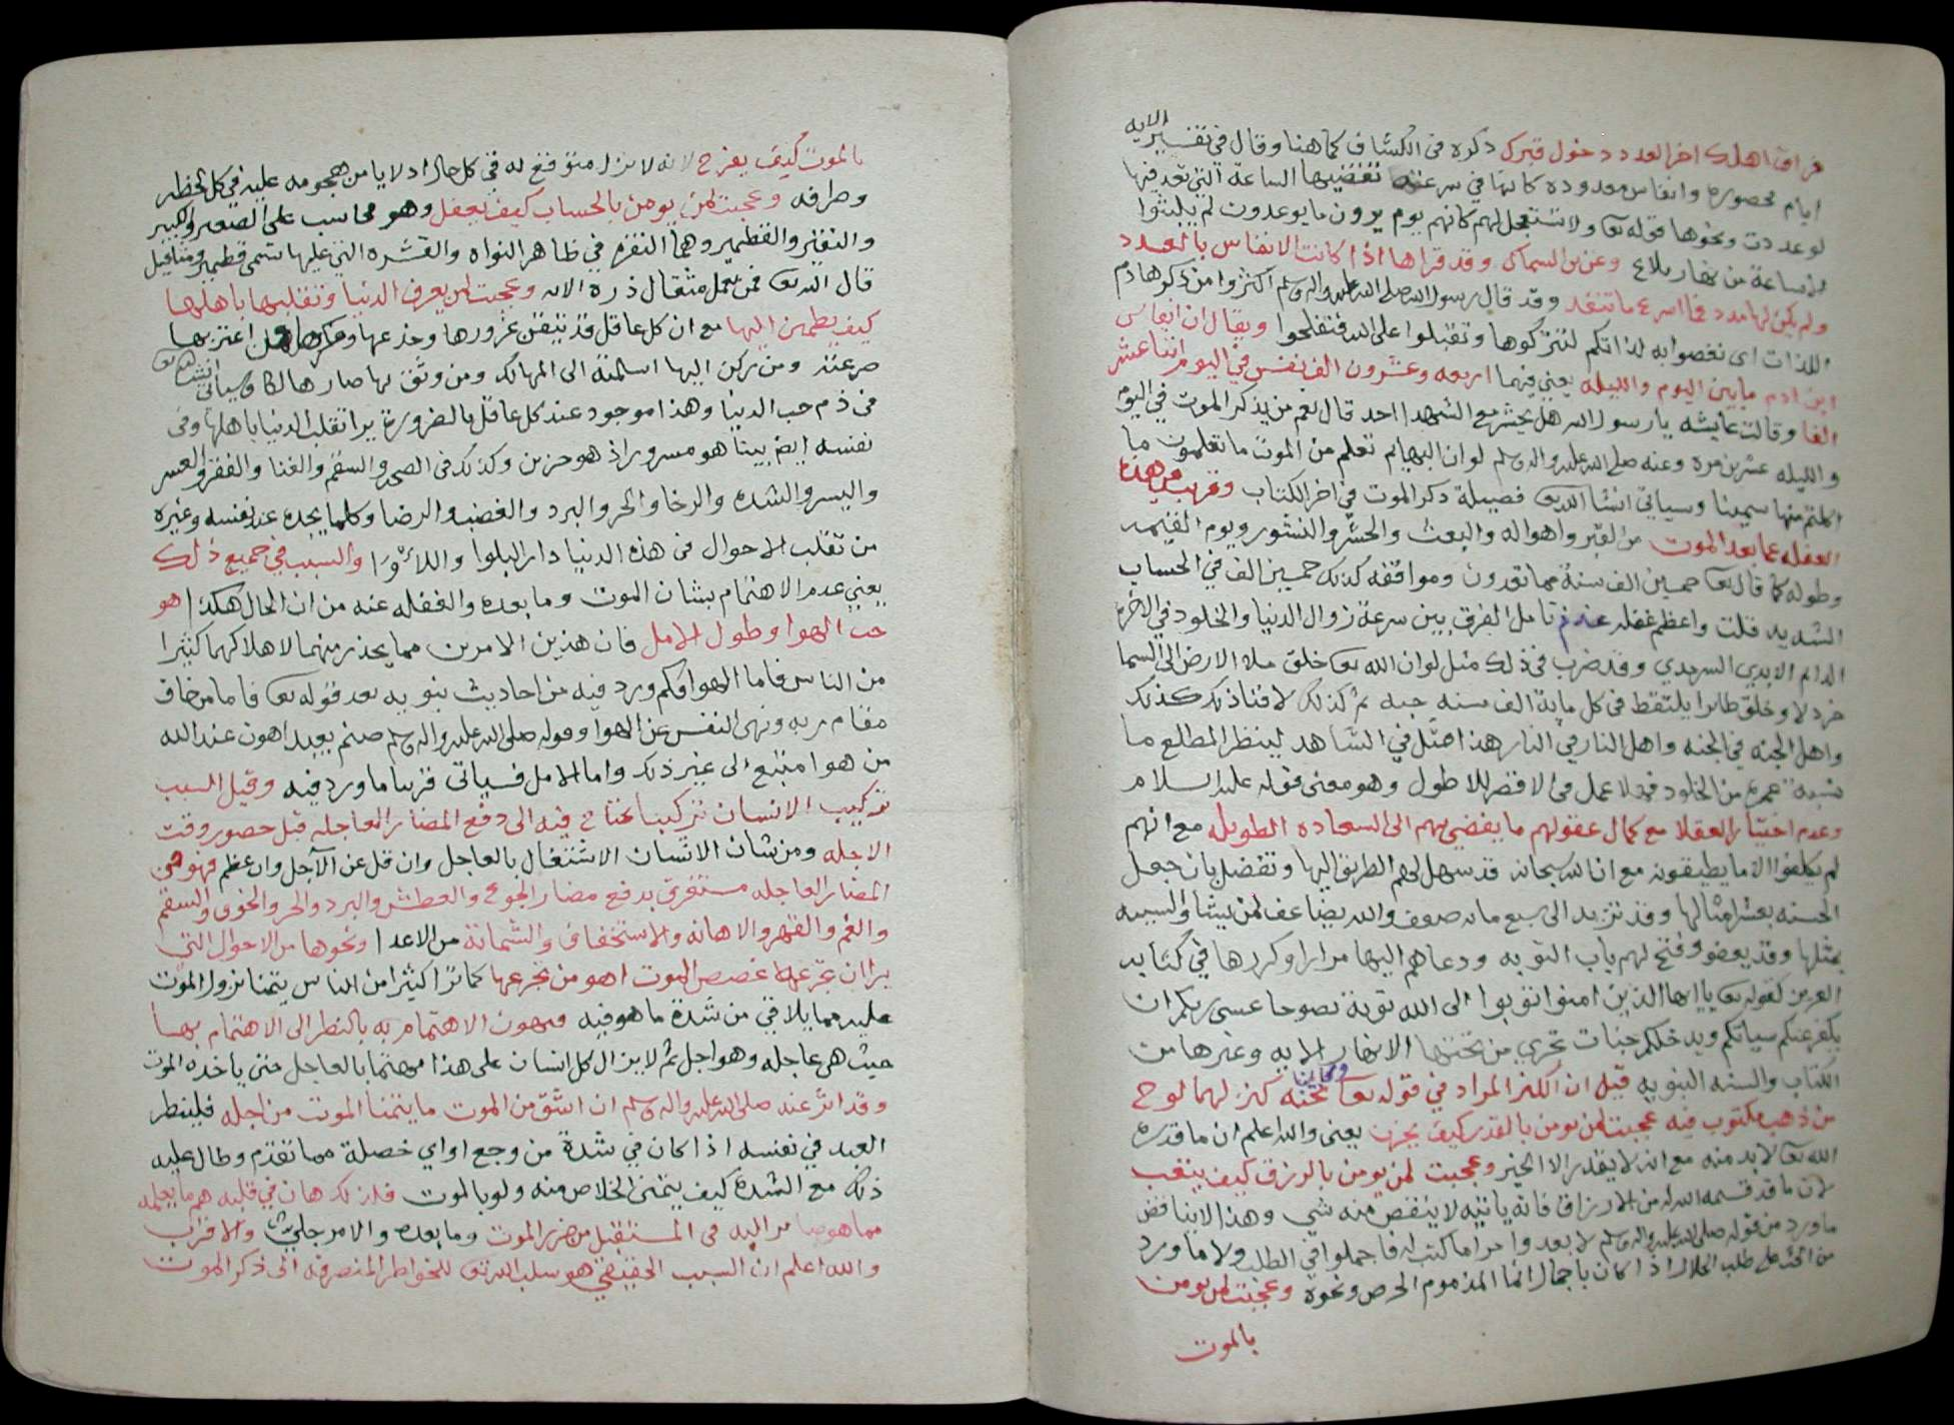 فراق اهلك اخر العدد دخول قبرك ذكره في الكشاف كما هنا وقال في تفسير الايه
ايام محصوره وانفاس معدوده كانها في سرعة تقضيها الساعة التي تعد فيها
لو عددت ونحوها قوله تعا ولا تستعجل لهم كانهم يوم يرون ما يوعدون لم يلبثوا
الا ساعة من نهار بلاغ وعن بن السماك وقد قراها اذا كانت الانفاس بالعدد
ولم يكن لها مدد فما اسرع ما تنفد وقد قال رسول الله صلى الله عليه واله وسلم اكثروا من ذكر هادم
اللذات اي نغصوا به لذاتكم لتتركوها وتقبلوا على الله فتفلحوا ويقال ان انفاس
ابن ادم ما بين اليوم والليله يعني فيهما اربعه وعشرون الف نفس في اليوم اثنا عشر
الفا وقالت عايشه يا رسول الله هل يحشر مع الشهدا احد قال نعم من يذكر الموت في اليوم
والليله عشرين مره وعنه صلى الله عليه واله وسلم لو ان البهايم تعلم من الموت ما تعلمون ما
اكلتم منها سمينا وسياتي انشا الله تعا فضيلة ذكر الموت في اخر الكتاب وقريب من هذا
الغفله عما بعد الموت من القبر واهواله والبعث والحشر والنشور ويوم القيمه
وطوله كما قال تعا خمسين الف سنة مما تعدون ومواقفه كذلك خمسين الف في الحساب
الشديد قلت واعظم غفله عدم تامل الفرق بين سرعة زوال الدنيا والخلود في الاخره
الدايم الابدي السرمدي وقد ضرب في ذلك مثل لو ان الله تعا خلق ملا الارض الى السما
خردلا وخلق طايرا يلتقط في كل ماية الف سنه حبه ثم كذلك لافنا ذلك كذلك
واهل الجنه في الجنه واهل النار في النار هذا مثل في الشاهد لينظر المطلع ما
نسبة عمره من الخلود فهلا عمل في الاقصر للاطول وهو معنى قوله عليه السلام
وعدم اختيار العقلا مع كمال عقولهم ما يفضي بهم الى السعاده الطويله مع انهم
لم يكلفوا الا ما يطيقونه مع ان الله سبحانه قد سهل لهم الطريق اليها وتفضل بان جعل
الحسنه بعشر امثالها وقد تزيد الى سبع مايه ضعف والله يضاعف لمن يشا والسييه
بمثلها وقد يعفو وفتح لهم باب التوبه ودعاهم اليها مرارا وكررها في كتابه
العزيز كقوله تعا يا ايها الذين امنوا توبوا الى الله توبة نصوحا عسى ربكم ان
يكفر عنكم سياتكم ويدخلكم جنات تجري من تحتها الانهار الايه وغيرها من
الكتاب والسنه النبويه قيل ان الكنز المراد في قوله تعا وكان تحته كنز لهما لوح
من ذهب مكتوب فيه عجبت لمن يومن بالقدر كيف يحزن يعني والله اعلم ان ما قدره
الله تعا لا بد منه مع انه لا يقدر الا الخير وعجبت لمن يومن بالرزق كيف يتعب
لان ما قد قسمه الله له من الارزاق فانه ياتيه لا ينقص منه شي وهذا لا يناقض
ما ورد من قوله صلى الله عليه واله وسلم لا يعدوا امرا ما كتب له فاجملوا في الطلب ولا ما ورد
من الحث على طلب الحلال اذا كان باجمال انما المذموم الحرص ونحوه وعجبت لمن يومن
بالموت
بالموت كيف يفرح لانه لا يزل متوقع له في كل حال اذ لا يامن هجومه عليه في كل لحظه
وطرفه وعجبت لمن يومن بالحساب كيف يغفل وهو محاسب على الصغير والكبير
والنقير والقطمير وهما النقره في ظاهر النواه والقشره التي عليها تسمى قطمير ومثاقيل
قال الله تعا فمن يعمل مثقال ذرة الايه وعجبت لمن يعرف الدنيا وتقلبها باهلها
كيف يطمين اليها مع ان كل عاقل قد تيقن غرورها وخدعها ومكرها من اغتر بها
صرعته ومن ركن اليها اسلمته الى المهالك ومن وثق بها صار هالكا وسياتي انشا الله تعا
في ذم حب الدنيا وهذا موجود عند كل عاقل بالضرورة يرا تقلب الدنيا باهلها وفي
نفسه ايض بينا هو مسرور اذ هو حزين وكذلك في الصحه والسقم والغنا والفقر والعسر
واليسر والشده والرخا والحر والبرد والغضب والرضا وكلما يجده عند نفسه وغيره
من تقلب الاحوال في هذه الدنيا دار البلوا واللاوا والسبب في جميع ذلك
يعني عدم الاهتمام بشان الموت وما بعده والغفله عنه من ان الحال هكذا هو
حب الهوا وطول الامل فان هذين الامرين مما يحذر منهما لاهلاكهما كثيرا
من الناس فاما الهوا فكم ورد فيه من احاديث نبويه بعد قوله تعا فاما من خاف
مقام ربه ونهى النفس عن الهوا وقوله صلى الله عليه واله وسلم صنم يعبد اهون عند الله
من هوا متبع الى غير ذلك واما الامل فسياتي قريبا ما ورد فيه وقيل السبب
تركيب الانسان تركيبا يحتاج فيه الى دفع المضار العاجله قبل حضور وقت
الاجله ومن شان الانسان الاشتغال بالعاجل وان قل عن الآجل وان عظم فهو في
المضار العاجله مستغرق بدفع مضار الجوع والعطش والبرد والحر والخوف والسقم
والغم والقهر والاهانه والاستخفاف والشماتة من الاعدا ونحوها من الاحوال التي
يرا ان تجرعه غصص الموت اهون من تجرعها كما ترا كثيرا من الناس يتمنا نزول الموت
عليه مما يلاقي من شدة ما هو فيه ويهون الاهتمام به بالنظر الى الاهتمام بها
حيث هي عاجله وهو اجل ثم لا يزال كل انسان على هذا مهتما بالعاجل حتى ياخذه الموت
وقد اثر عنه صلى الله عليه واله وسلم ان اشق من الموت ما يتمنا الموت من اجله فلينظر
العبد في نفسه اذا كان في شدة من وجع او اي خصلة مما تقدم وطال عليه
ذلك مع الشدة كيف يتمنى الخلاص منه ولو بالموت فلذلك هان في قلبه هم ما يعلمه
مما هو صاير اليه في المستقبل من ضرر الموت وما بعده والامر جلي والاقرب
والله اعلم ان السبب الحقيقي هو سلب الله تعا للخواطر المنصرفه الى ذكر الموت